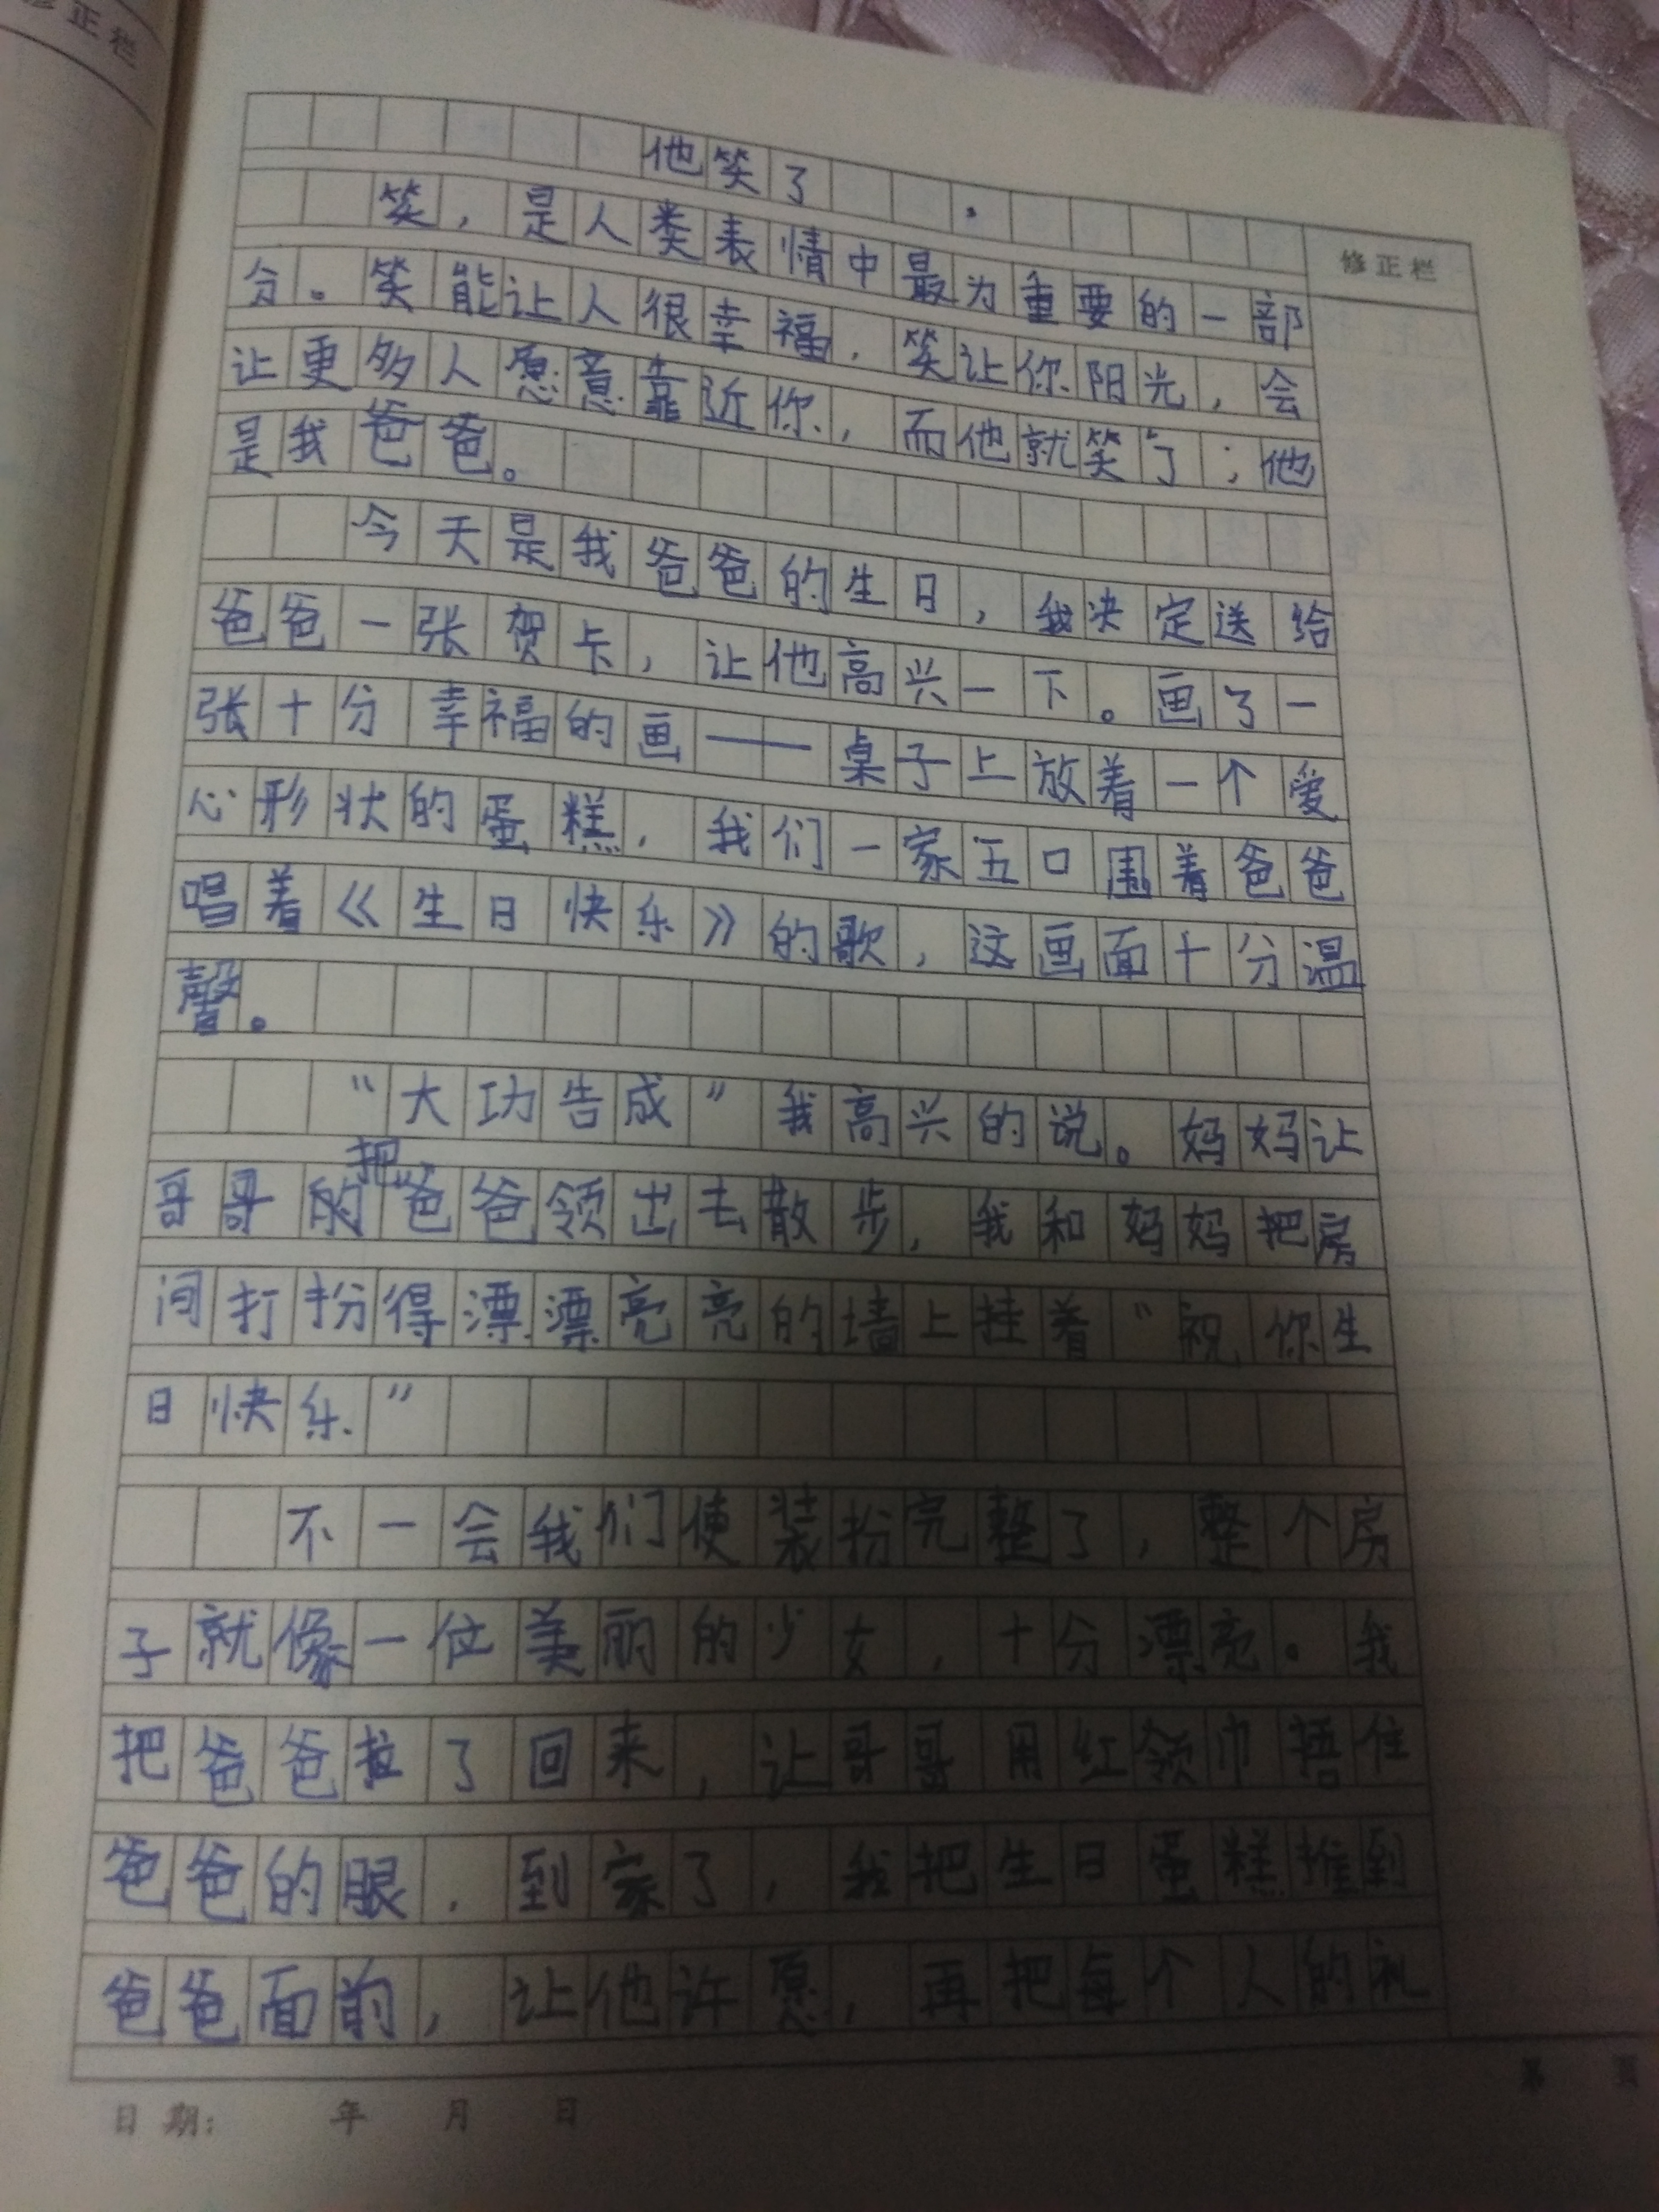 修正栏
他笑了
笑，是人类表情中最为重要的一部
分。笑能让人很幸福，笑让你阳光，会
让更多人愿意靠近你，而他就笑了；他
是我爸爸。
今天是我爸爸的生日，我决定送给
爸爸一张贺卡，让他高兴一下。画了一
张十分幸福的画——桌子上放着一个爱
心形状的蛋糕，我们一家五口围着爸爸
唱着《生日快乐》的歌，这画面十分温
馨。
“大功告成”我高兴的说。妈妈让
把
哥哥的爸爸领出去散步，我和妈妈把房
间打扮得漂漂亮亮的墙上挂着“祝你生
日快乐”
不一会我们使装扮完整了，整个房
子就像一位美丽的少女，十分漂亮。我
把爸爸拉了回来，让哥哥用红领巾捂住
爸爸的眼，到家了，我把生日蛋糕推到
爸爸面前，让他许愿，再把每个人的礼
修正栏
日期： 年 月 日
第 页